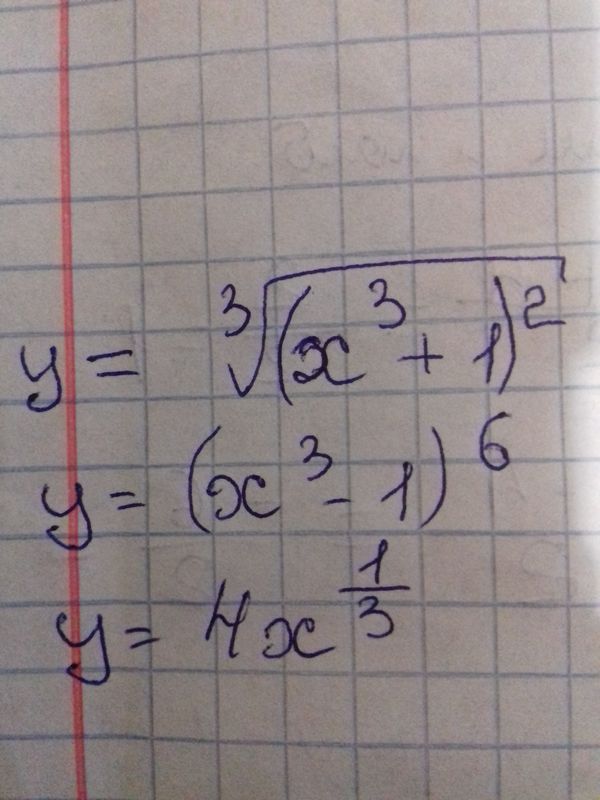 y = ∛((x³ + 1)²)
y = (x³ - 1)⁶
y = 4x^(1/3)